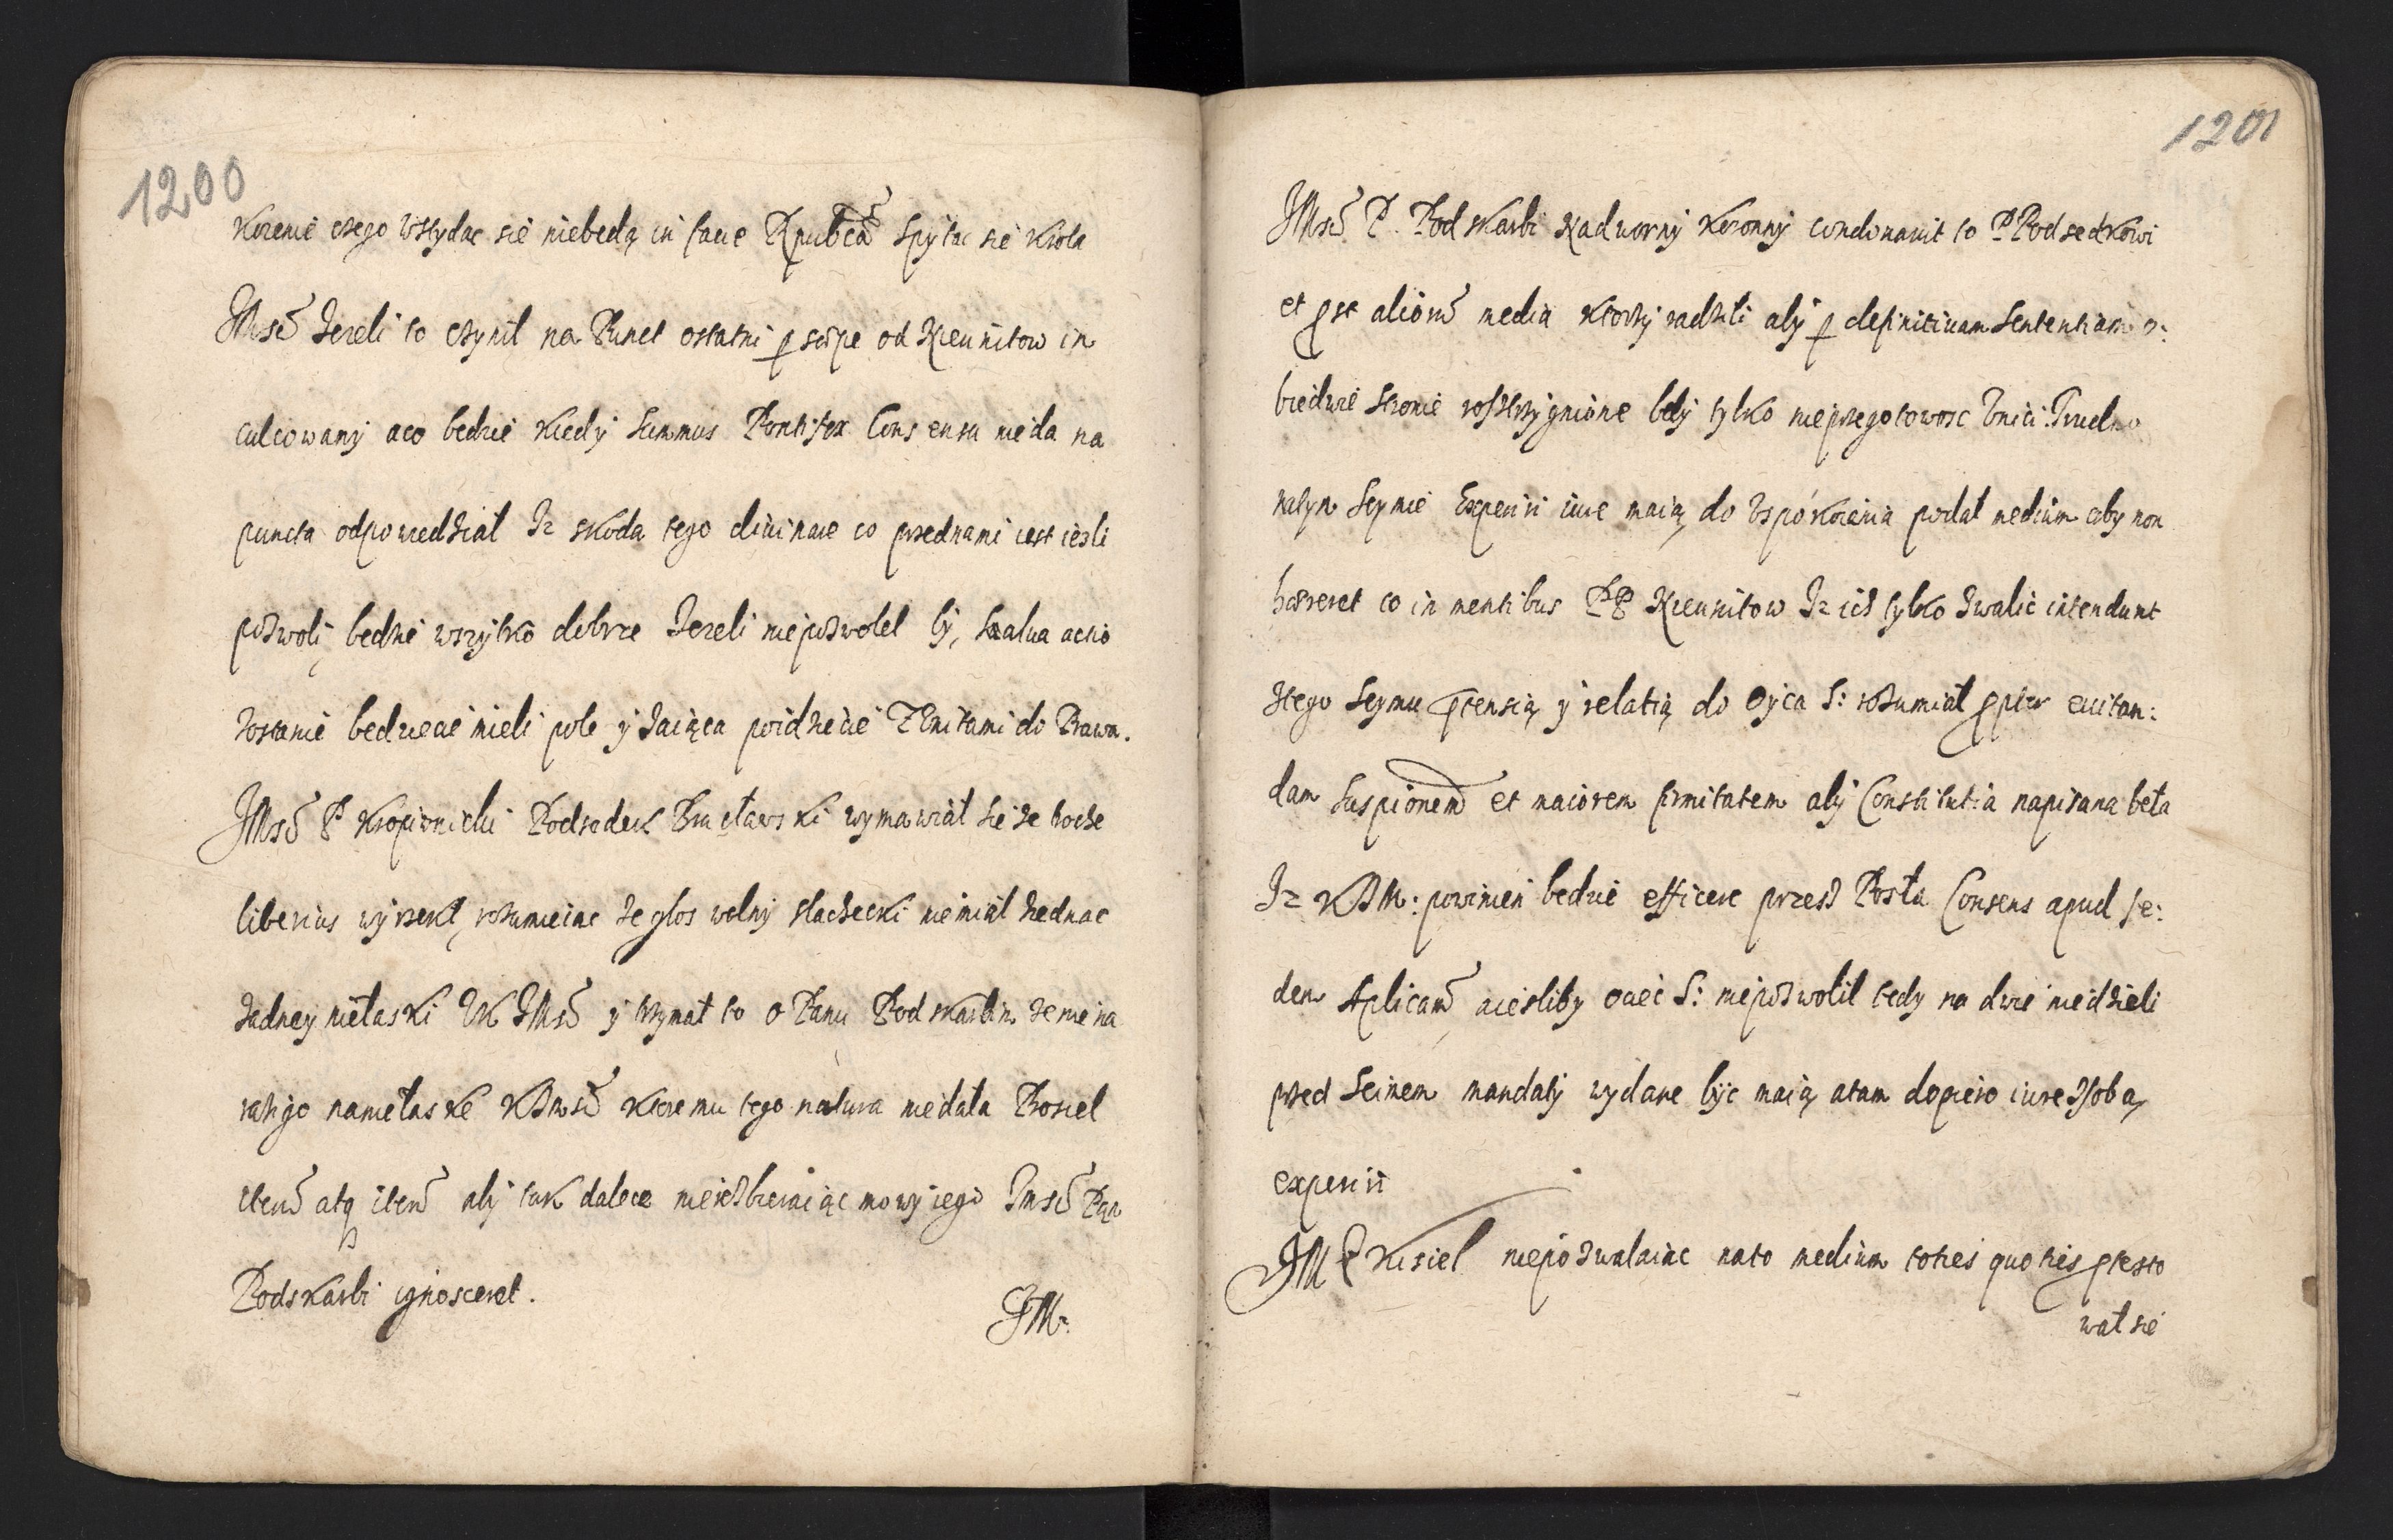 1200
korenie czego wstydac się niebedą in facie Rpubca spytac się Krola
JMsci Jezeli to czynił na Punct ostatni p saepe od Nieunitow in
culcowany aco bedzie kiedy Summus Pontifex Consensu nieda na
puncta odpowiedział Iz skoda tego diuinare co przednami iest iezli
pozwoli bedzie wszytko dobrze Jezeli niepozwolel by, salua actio
zostanie bedziecie mieli pole y zaiąca poidzecie z Unitami do Prawa.
JMsci P Kropiwnicki Podsedek Bracławski wymawiał się ze troche
liberius wyrzekł, rozumieiac ze glos wolny slachecki nie miał zednac
zadney niełaski UK JMsci y trzymał to o Panu Podskarbim ze nie na
raził go naniełaske KJmsci ktoremu tego natura niedała Prosiel
item atq item aby tak dalece nierozbieraiąc mowy iego Jmsci Pan
Podskarbi ignosceret.
JM.
1201
JMsci P. Podskarbi Nadworny Koronny condonauit to P Podsedkowi
et pst aliorum media ktorzy radzili aby p definitiuam Sententiam o:
biedwie stronie rozstrzygnione beły tylko nieprzegotowosc Unici. Trudno
natym Seymie Experiri iure maią, do Uspokoienia podał medium aby non
haereret co in mentibus PP Nieunitow Iz ich tylko zwalic intendunt
ztego Seymu ptensią y relatią do Oyca S: rozumiał ppter euitan:
dam suspionem et maiorem firmitatem aby Constitutia napisana beła
Iz KJM: powinien bedzie efficere przez Posła Consens apud Se:
dem Aplicam aiesliby ociec S: niepozwolił tedy na dwie niedzieli
przed Seimem mandaty wydane być maią atam dopiero iure zsobą
experiri
JM P Kisiel niepozwalaiac nato medium toties quoties ptesto
wał się